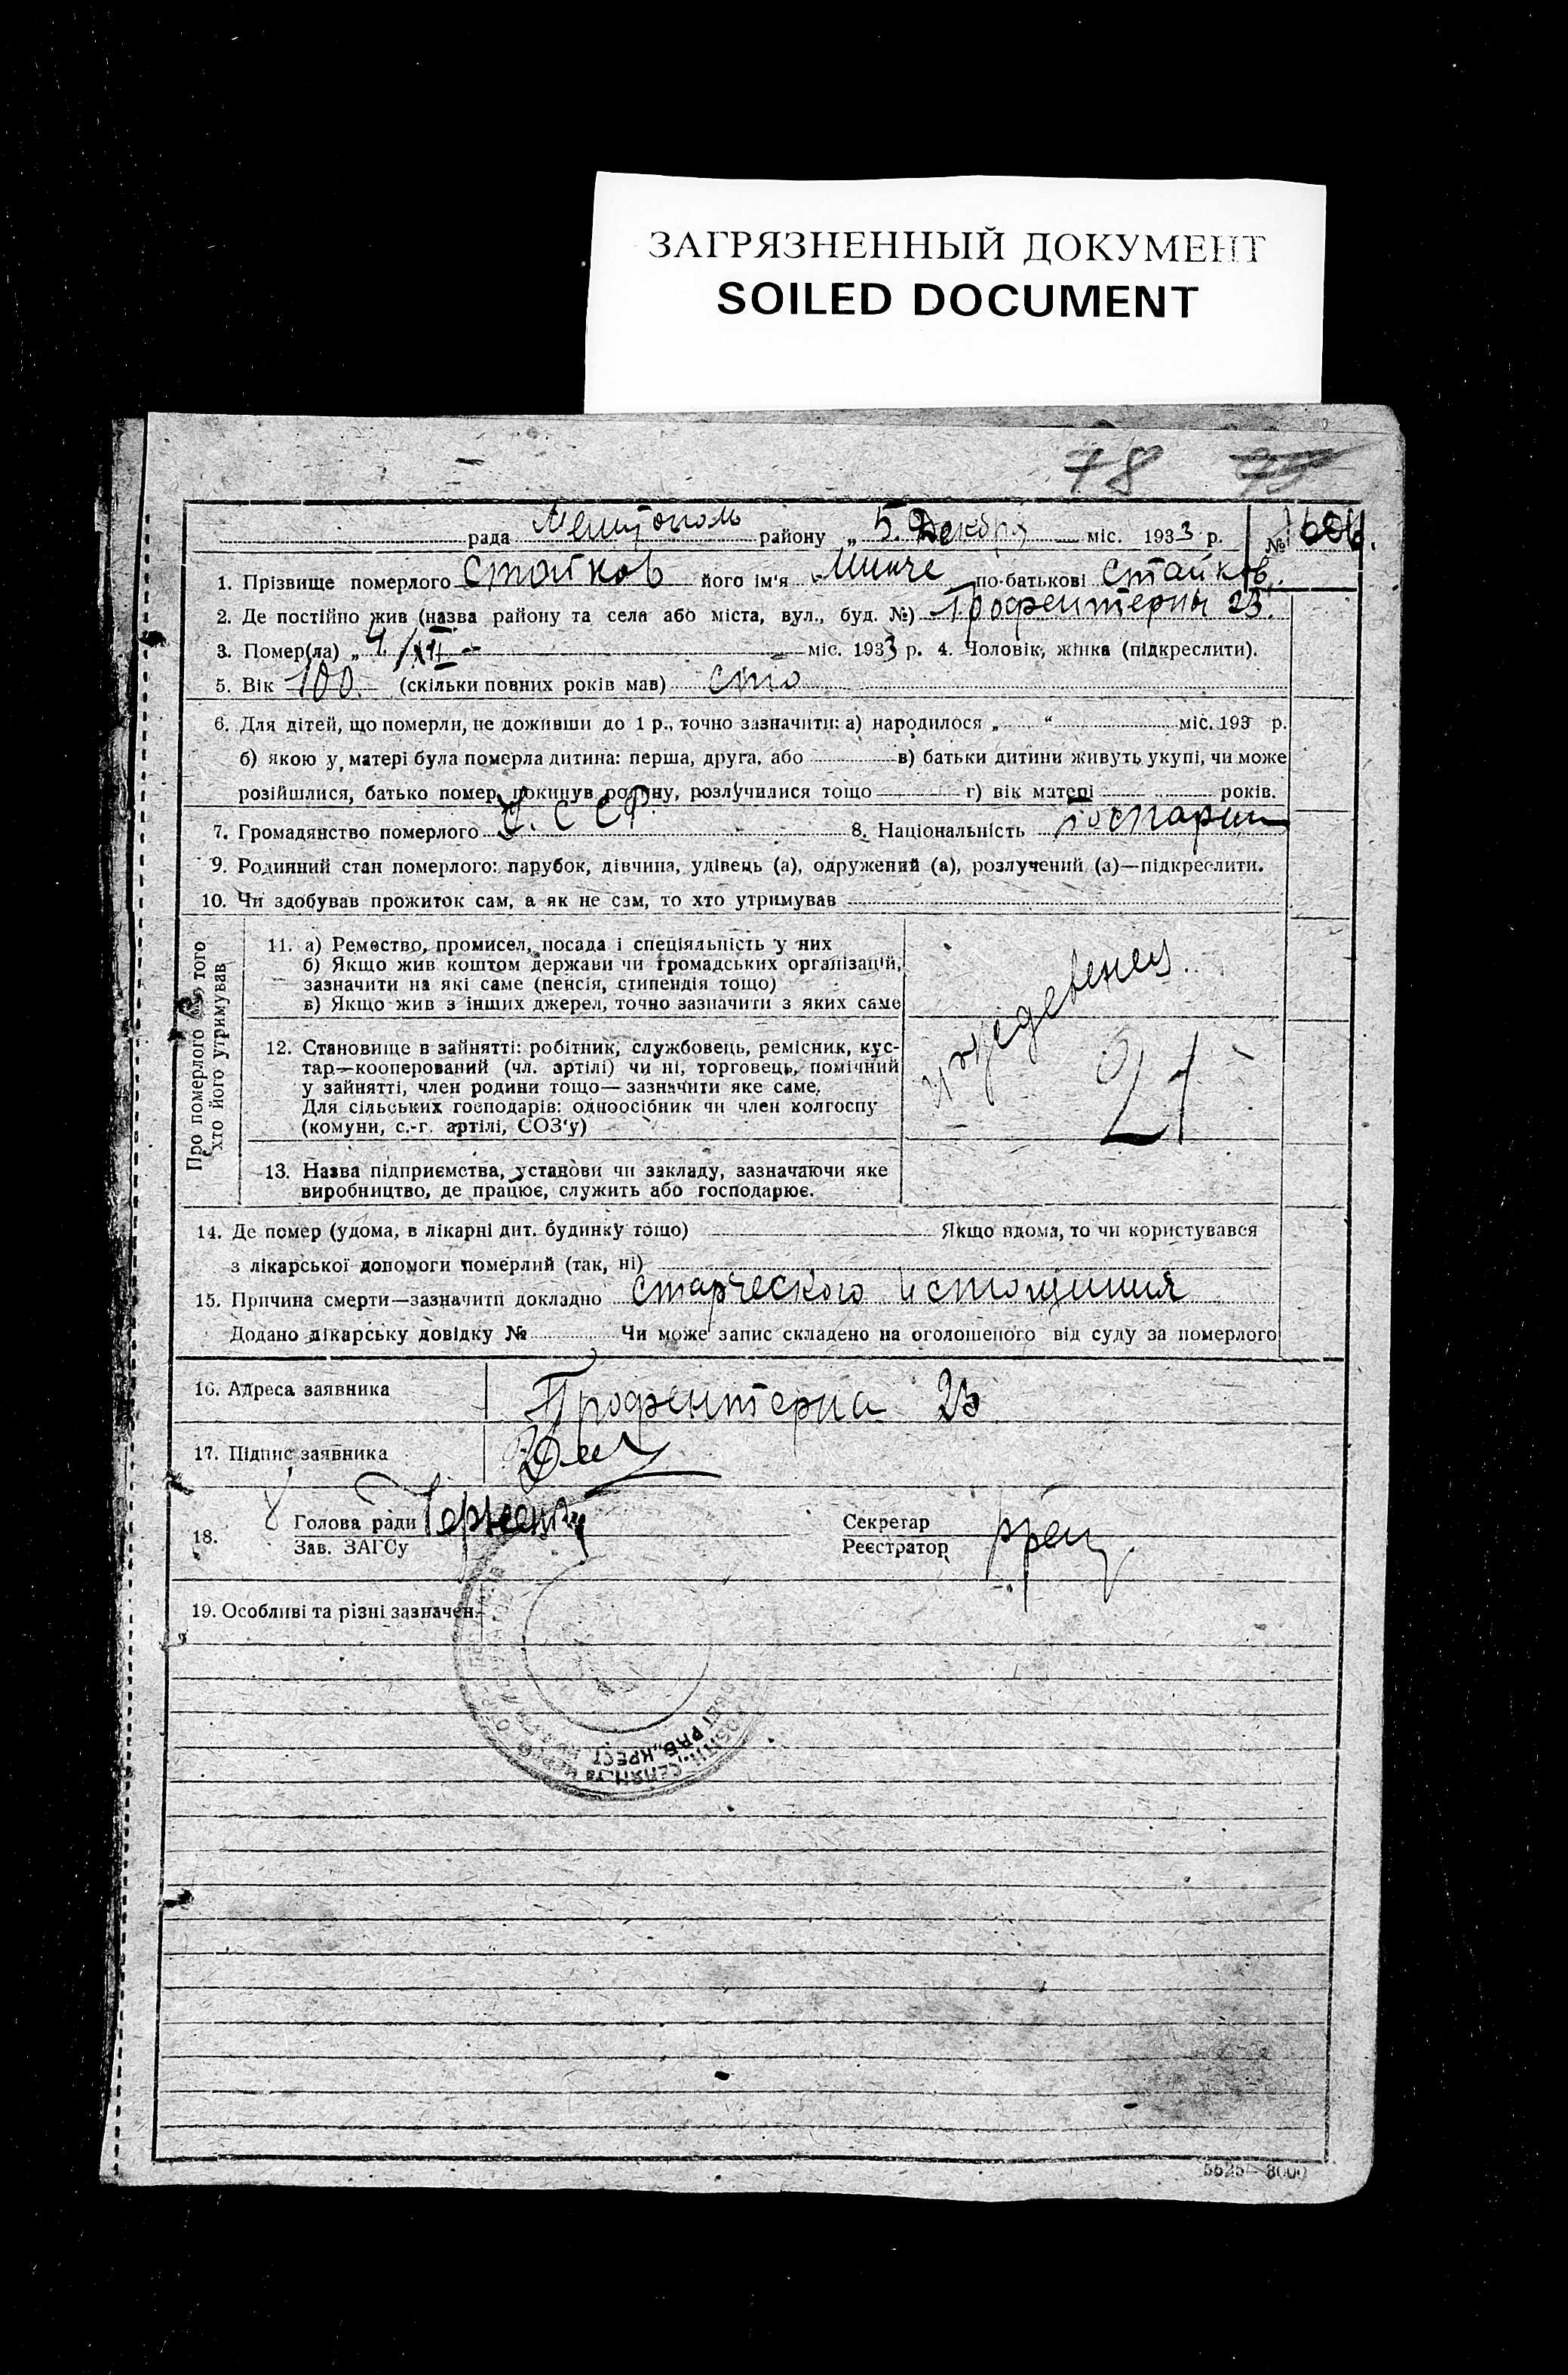 ЗАГРЯЗНЕННЫЙ ДОКУМЕНТ
SOILED DOCUMENT
78
рада Мелитополь району „ 5 Декабря міс. 1933 р. №
1. Прізвище померлого Стойков його ім'я Минче по-батькові Стайков.
2. Де постійно жив (назва району та села або міста, вул., буд. №) Профентерны 23.
3. Помер(ла) „ 4/XII - міс. 1933 р. 4. Чоловік, жінка (підкреслити).
5. Вік 100. (скільки повних років мав) сто
6. Для дітей, що померли, не доживши до 1 р., точно зазначити: а) народилося „ “ міс. 193 р.
б) якою у матері була померла дитина: перша, друга, або в) батьки дитини живуть укупі, чи може
розійшлися, батько помер, покинув родину, розлучилися тощо г) вік матері років.
7. Громадянство померлого У. С С Р. 8. Національність
9. Родинний стан померлого: парубок, дівчина, удівець (а), одружений (а), розлучений (а)—підкреслити.
10. Чи здобував прожиток сам, а як не сам, то хто утримував
Про померлого або того хто його утримував
11. а) Ремество, промисел, посада і спеціяльність у них
б) Якщо жив коштом держави чи громадських організацій,
зазначити на які саме (пенсія, стипендія тощо)
в) Якщо жив з інших джерел, точно зазначити з яких саме
иждевенец.
12. Становище в зайнятті: робітник, службовець, ремісник, кус-
тар—кооперований (чл. артілі) чи ні, торговець, помічний
у зайнятті, член родини тощо—зазначити яке саме.
Для сільських господарів: одноосібник чи член колгоспу
(комуни, с.-г. артілі, СОЗ'у)
21
13. Назва підприємства, установи чи закладу, зазначаючи яке
виробництво, де працює, служить або господарює.
14. Де помер (удома, в лікарні дит. будинку тощо) Якщо вдома, то чи користувався
з лікарської допомоги померлий (так, ні)
15. Причина смерти—зазначити докладно старческого истощиния
Додано лікарську довідку № Чи може запис складено на оголошеного від суду за померлого
16. Адреса заявника Профентерна 23
17. Підпис заявника
18. Голова ради
Зав. ЗАГСу
Секретар
Реєстратор
19. Особливі та різні зазначен.
5525—8000